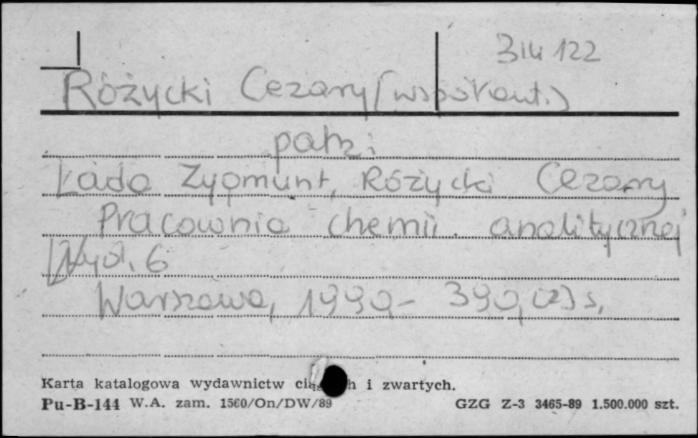 3 14 122
Różycki Cezary (współaut.)
patrz:
Łada Zygmunt, Różycki Cezary
Pracownia chemii analitycznej
Wyd. 6
Warszawa, 1990 - 390, [2] s.
Karta katalogowa wydawnictw ciągłych i zwartych.
Pu-B-144 W.A. zam. 1560/On/DW/89 GZG Z-3 3465-89 1.500.000 szt.